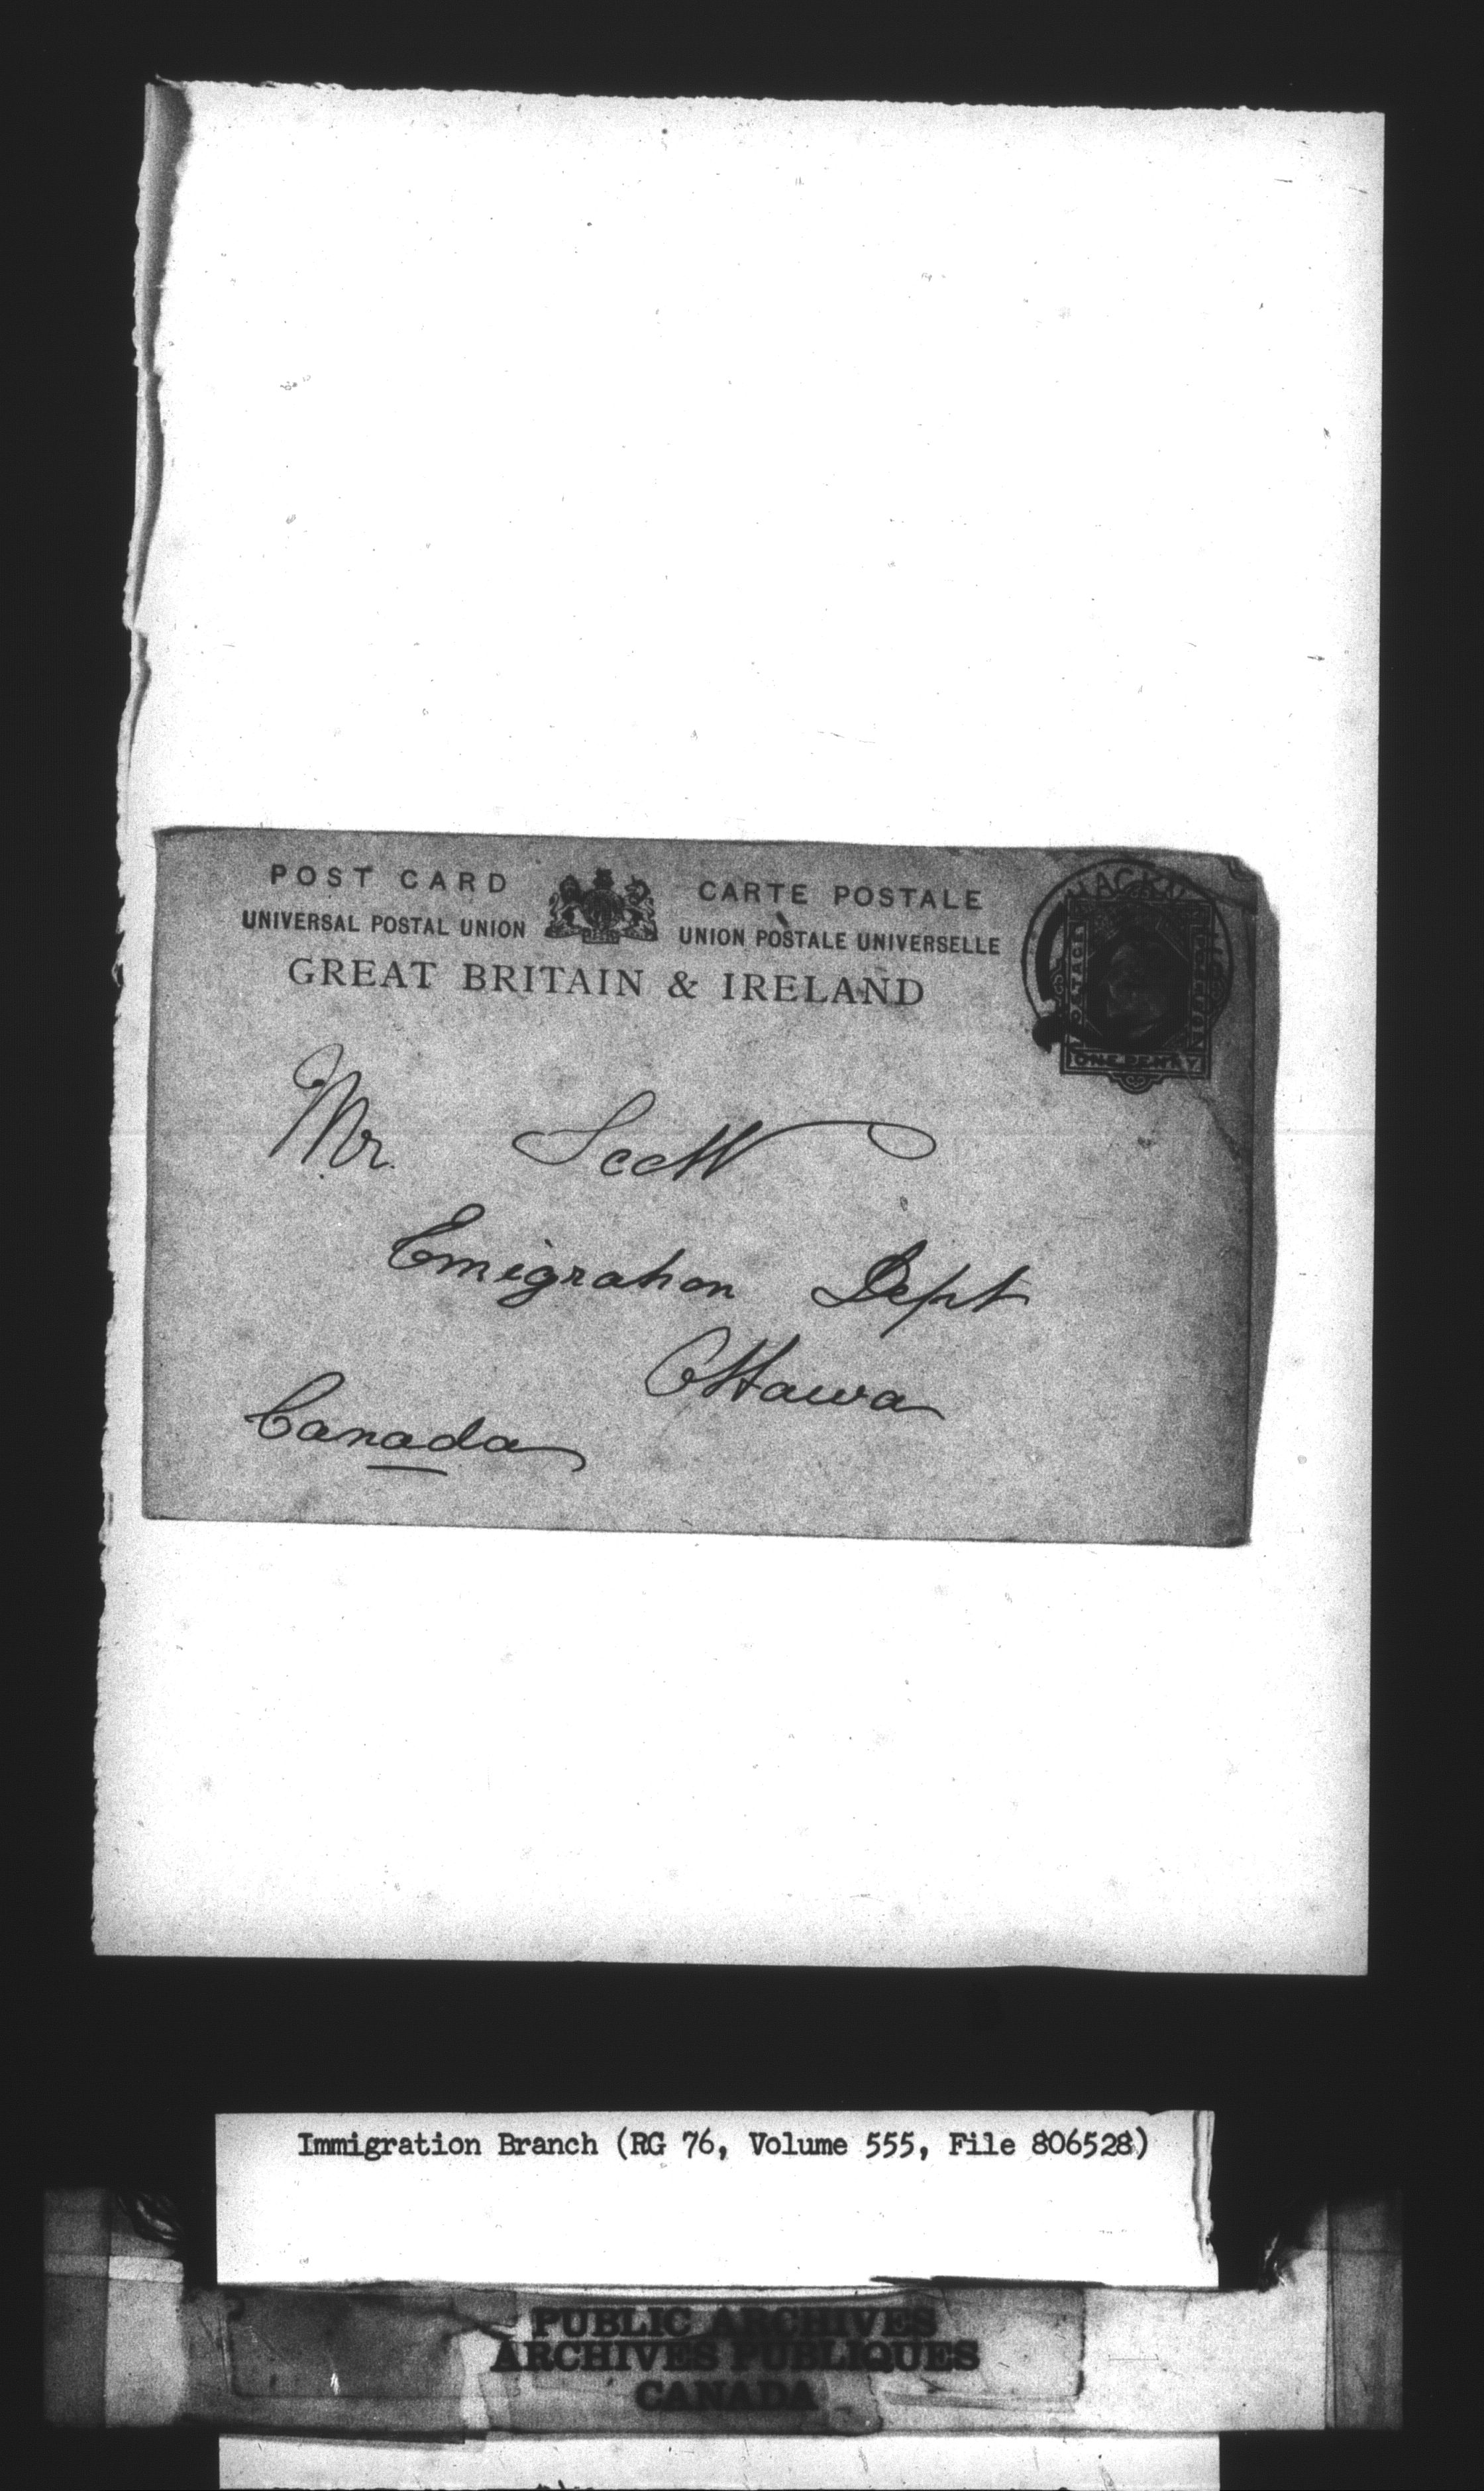 POST CARD CARTE POSTALE
UNIVERSAL POSTAL UNION UNION POSTALE UNIVERSELLE
GREAT BRITAIN & IRELAND
POSTAGE
ONE PENNY
Mr. Scott
Emigration Dept
Ottawa
Canada
Immigration Branch (RG 76, Volume 555, File 806528)
PUBLIC ARCHIVES
ARCHIVES PUBLIQUES
CANADA